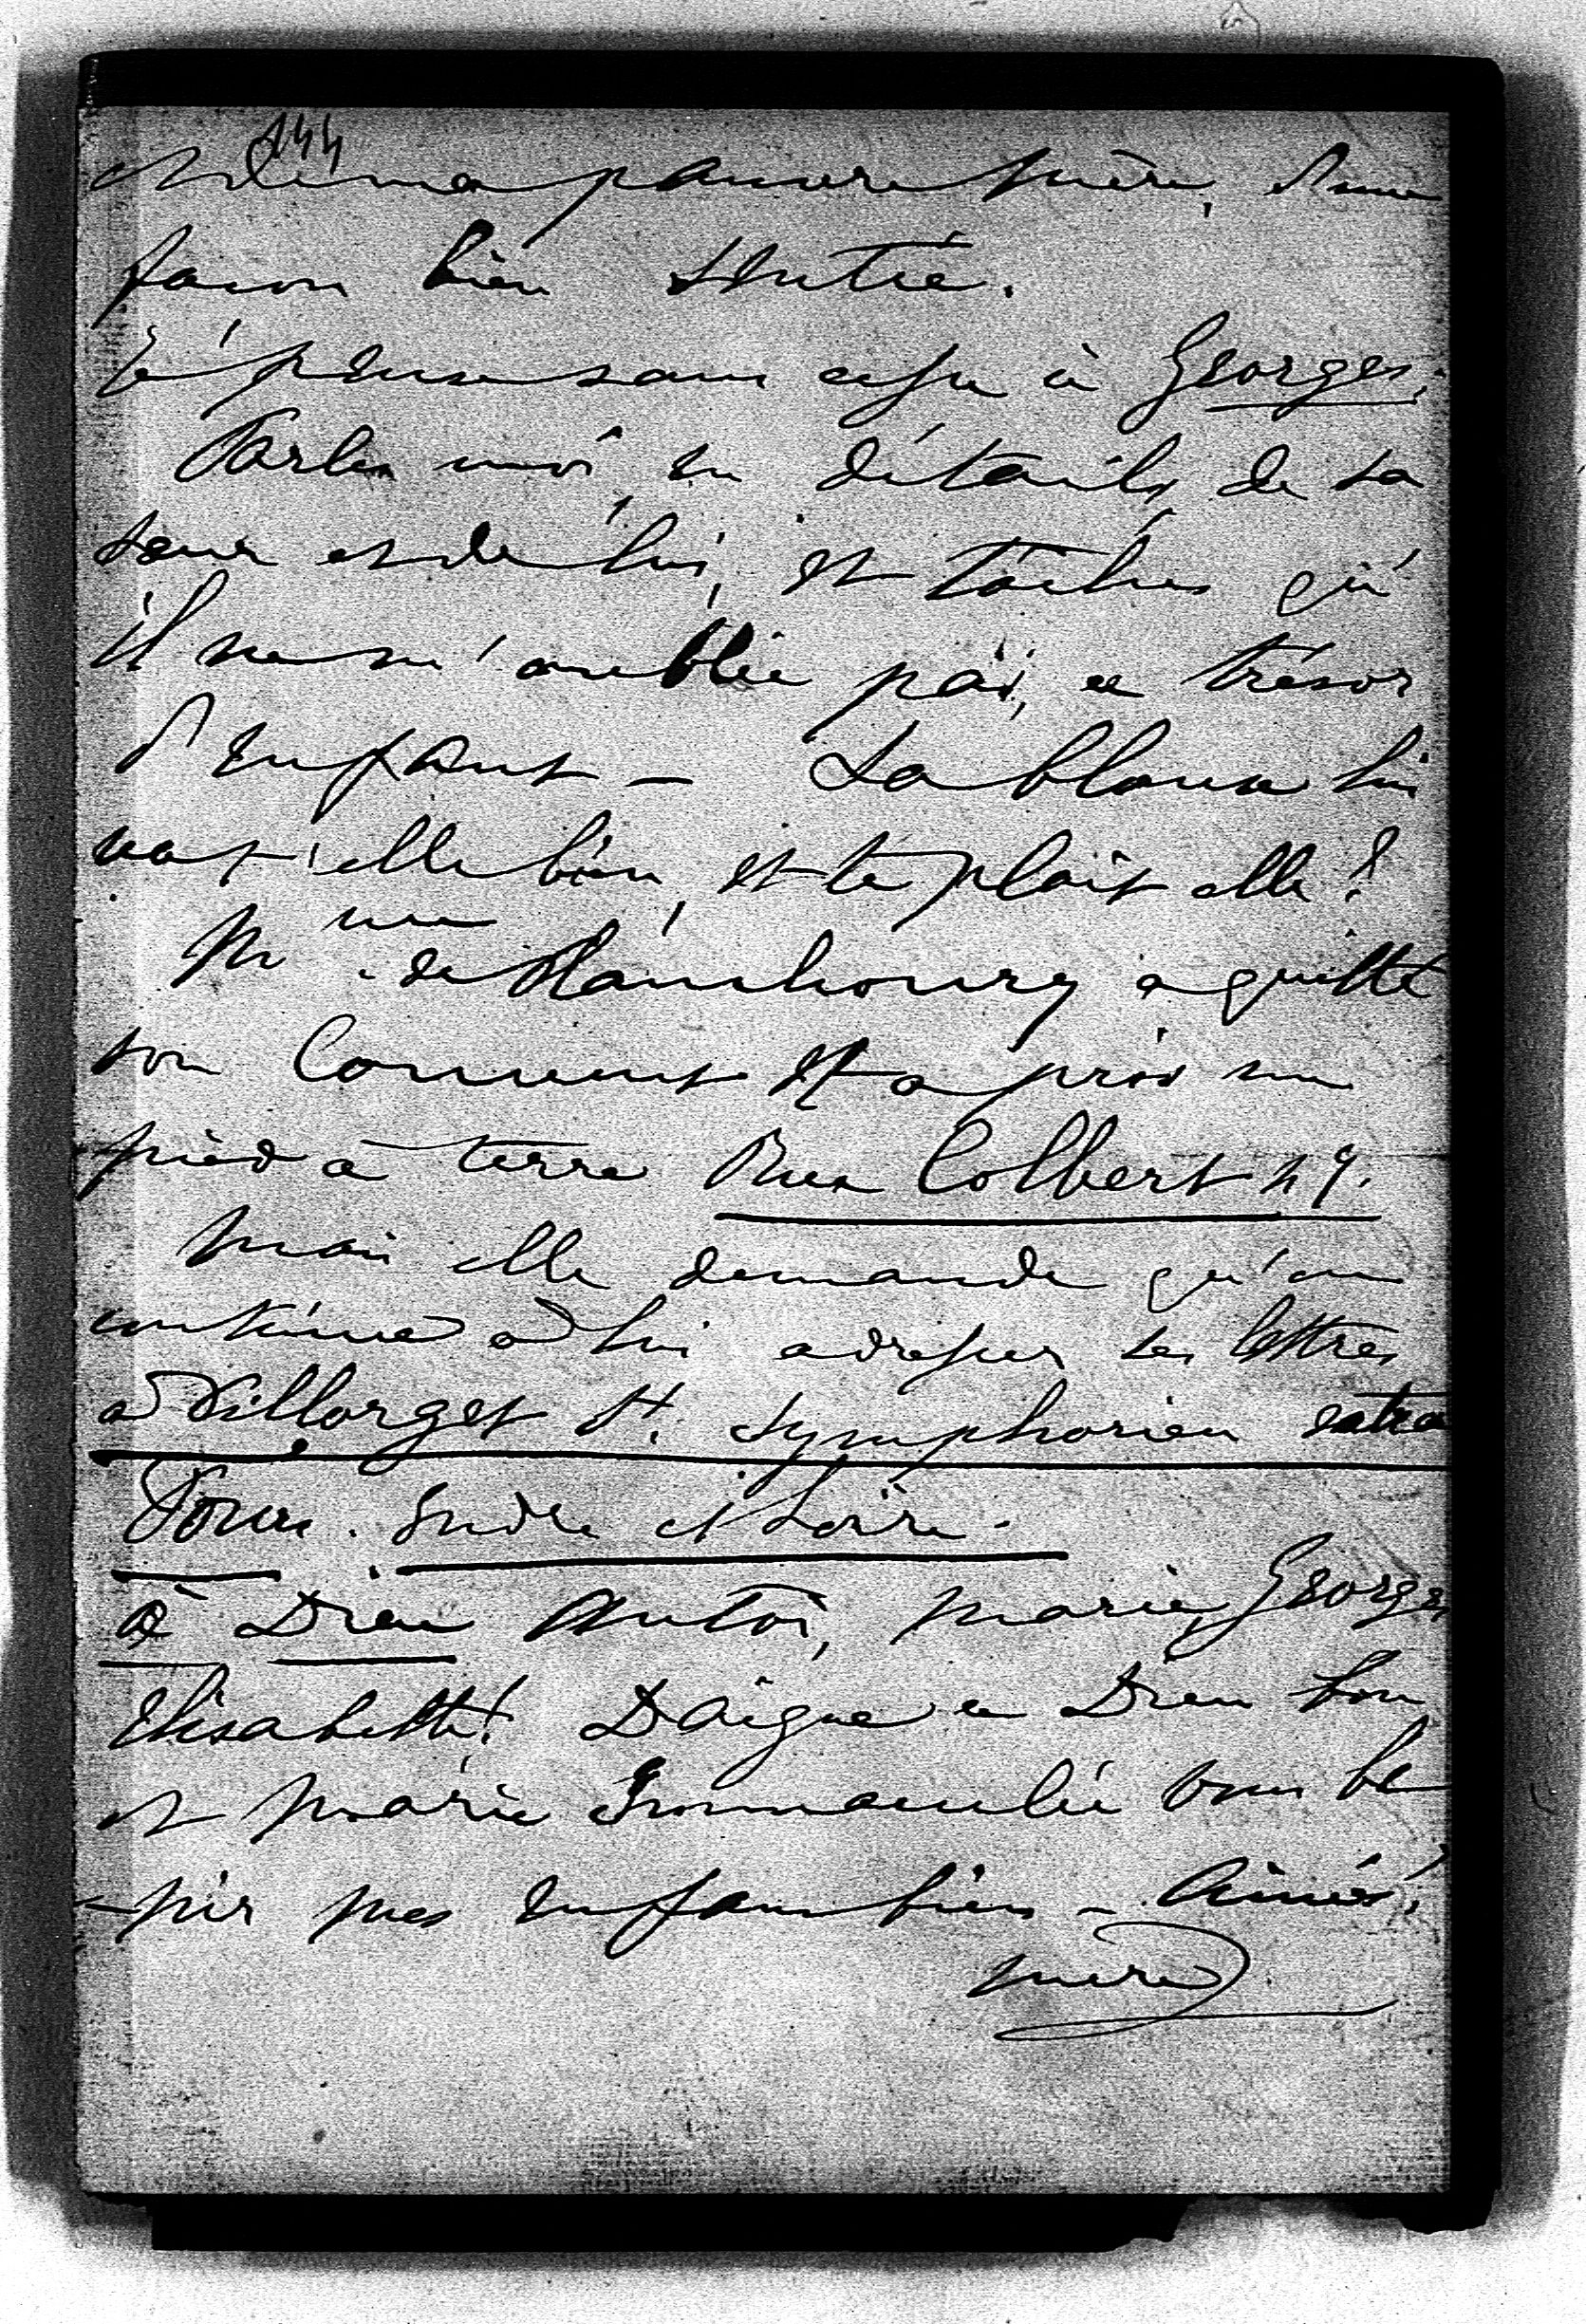 144
et de ma pauvre mère, d'une
façon bien sentie.
Je pense sans cesse à Georges.
Parles moi, en détails, de sa
sœur et de lui, et taches qu'
il ne m'oublie pas, ce trésor
d'enfant — La blouse lui
vat-elle bien, et te plait elle?
Mme de a quitté
son Couvent et a pris un
pied à terre Rue Colbert 49.
Mais elle demande qu'on
continue à lui adresser ses lettres
à Villorget St. Symphorien extra
Tours. Indre et Loire.
à Dieu Marie, Georges
Elisabeth! Daigne ce Dieu bon
et Marie Immaculée vous bé
-nir mes enfans bien-Aimés!
mère